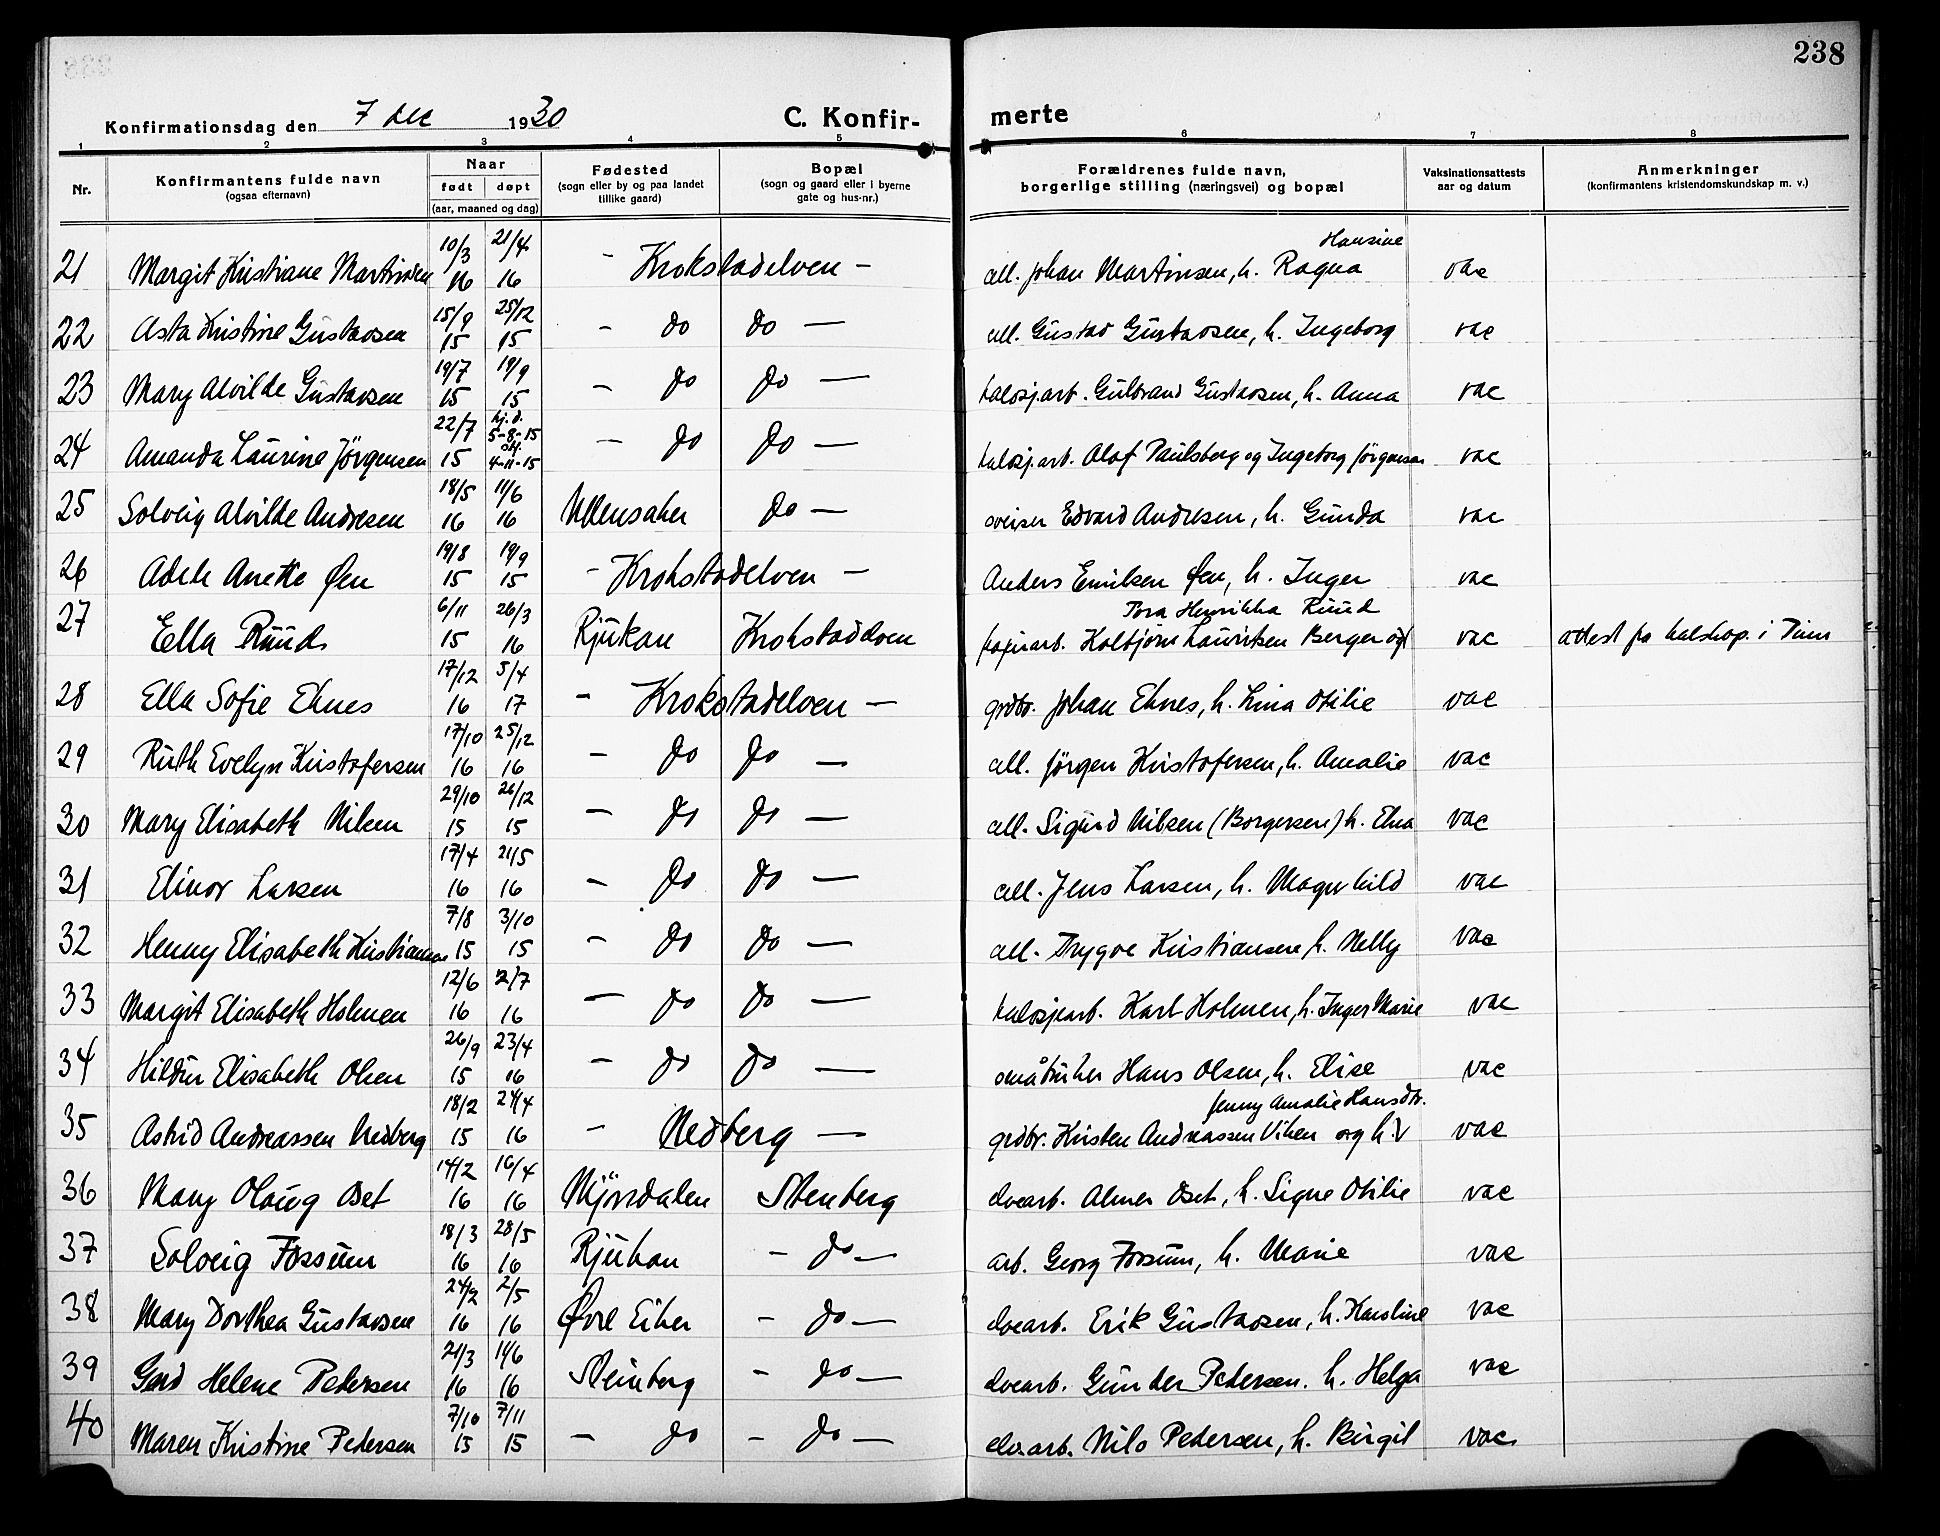 238
Konfirmationsdag den 7 dec 1930 C. Konfirmerte
1 2 3 4 5 6 7 8
Nr. Konfirmantens fulde navn (ogsaa efternavn) Naar født døpt (aar, maaned og dag) Fødested (sogn eller by og paa landet tillike gaard) Bopæl (sogn og gaard eller i byerne gate og hus-nr.) Forældrenes fulde navn, borgerlige stilling (næringsvei) og bopæl Vaksinationsattests aar og datum Anmerkninger (konfirmantens kristendomskundskap m. v.)
21 Margit Kristiane Martinsen 10/3 16 21/4 16 - Krokstadelven - all. Johan Martinsen, h. Ragna Hansine vac
22 Asta Kristine Gustavsen 15/9 15 25/12 15 - do do - all. Gustav Gustavsen, h. Ingeborg vac
23 Mary Alvilde Gustavsen 19/7 15 19/9 15 - do do - kalosj.arb. Gulbrand Gustavsen, h. Anna vac
24 Amanda Laurine Jörgensen 22/7 15 hj.d. 5-8-15 st. 4-11-15 - do do - kalosj.arb. Olaf Paulsberg og Ingeborg Jörgensen vac
25 Solveig Alvilde Andresen 18/5 16 11/6 16 Ullensaker do - sveiser Edvard Andresen, h. Gunda vac
26 Adele Anette Øen 19/8 15 19/9 15 - Krokstadelven - Anders Emilsen Øen, h. Inger vac
27 Ella Ruud 6/11 15 26/3 16 Rjukan Krokstadelven papirarb. Kolbjörn Lauritsen Berger og Tora Henrikka Ruud vac attest fra halshop. i Tinn
28 Ella Sofie Eknes 17/12 16 5/4 17 - Krokstadelven - grdbr. Johan Eknes, h. Lina Otilie vac
29 Ruth Evelyn Kristofersen 17/10 16 25/12 16 - do do - all. Jörgen Kristofersen, h. Amalie vac
30 Mary Elisabeth Nilsen 29/10 15 26/12 15 - do do - all. Sigurd Nilsen (Borgersen) h. Elna vac
31 Elinor Larsen 17/4 16 21/5 16 - do do - all. Jens Larsen, h. Magnhild vac
32 Henny Elisabeth Kristiansen 7/8 15 3/10 15 - do do - all. Trygve Kristiansen h. Nelly vac
33 Margit Elisabeth Holmen 12/6 16 2/7 16 - do do - kalosjearb. Karl Holmen, h. Inger Marie vac
34 Hildur Elisabeth Olsen 26/9 15 23/4 16 - do do - småbruker Hans Olsen, h. Elise vac
35 Astrid Andreassen Nedberg 18/2 15 24/4 16 - Nedberg - grdbr. Kristen Andreassen Viken og h. Jenny Amalie Hansdtr. vac
36 Mary Olaug Oset 14/2 16 16/4 16 Mjöndalen Stenberg elvearb. Almer Oset, h. Signe Otilie vac
37 Solveig Fossum 18/3 16 28/5 16 Rjukan - do - arb. Georg Fossum, h. Marie vac
38 Mary Dorthea Gustavsen 24/2 16 2/5 16 Øvre Eiker - do - elvearb. Erik Gustavsen, h. Karoline vac
39 Gerd Helene Pedersen 21/3 16 14/6 16 Steinberg - do - elvearb. Gunder Pedersen. h. Helga vac
40 Maren Kristine Pedersen 7/10 15 7/11 15 - do - do - elvearb. Nils Pedersen, h. Birgit vac